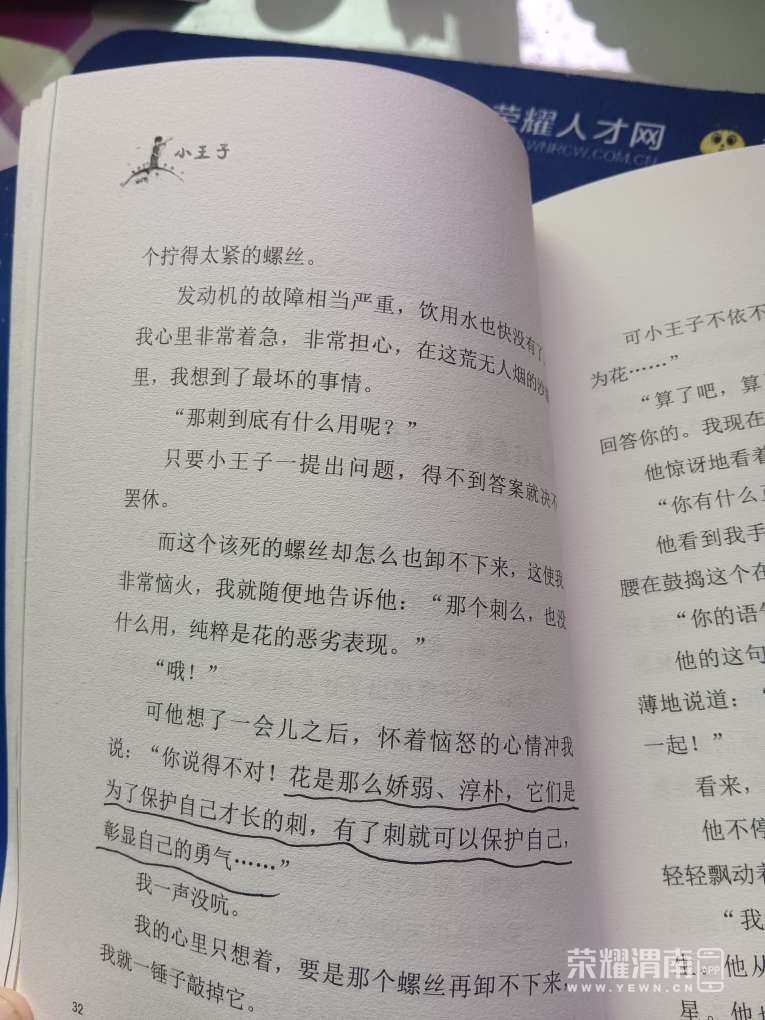 荣耀人才网
WWW.WNRCW.COM.CN
小王子
个拧得太紧的螺丝。
发动机的故障相当严重，饮用水也快没有了，
我心里非常着急，非常担心，在这荒无人烟的沙漠
里，我想到了最坏的事情。
“那刺到底有什么用呢？”
只要小王子一提出问题，得不到答案就决不
罢休。
而这个该死的螺丝却怎么也卸不下来，这使我
非常恼火，我就随便地告诉他：“那个刺么，也没
什么用，纯粹是花的恶劣表现。”
“哦！”
可他想了一会儿之后，怀着恼怒的心情冲我
说：“你说得不对！花是那么娇弱、淳朴，它们是
为了保护自己才长的刺，有了刺就可以保护自己，
彰显自己的勇气……”
我一声没吭。
我的心里只想着，要是那个螺丝再卸不下来，
我就一锤子敲掉它。
32
可小王子不依不
为花……”
“算了吧，算
回答你的。我现在
他惊讶地看着
“你有什么
他看到我手
腰在鼓捣这个在
“你的语气
他的这句
薄地说道：“
一起！”
看来，
他不停
轻轻飘动着
“我
生，他从
星。他
荣耀渭南
APP
WWW.YEWN.CN